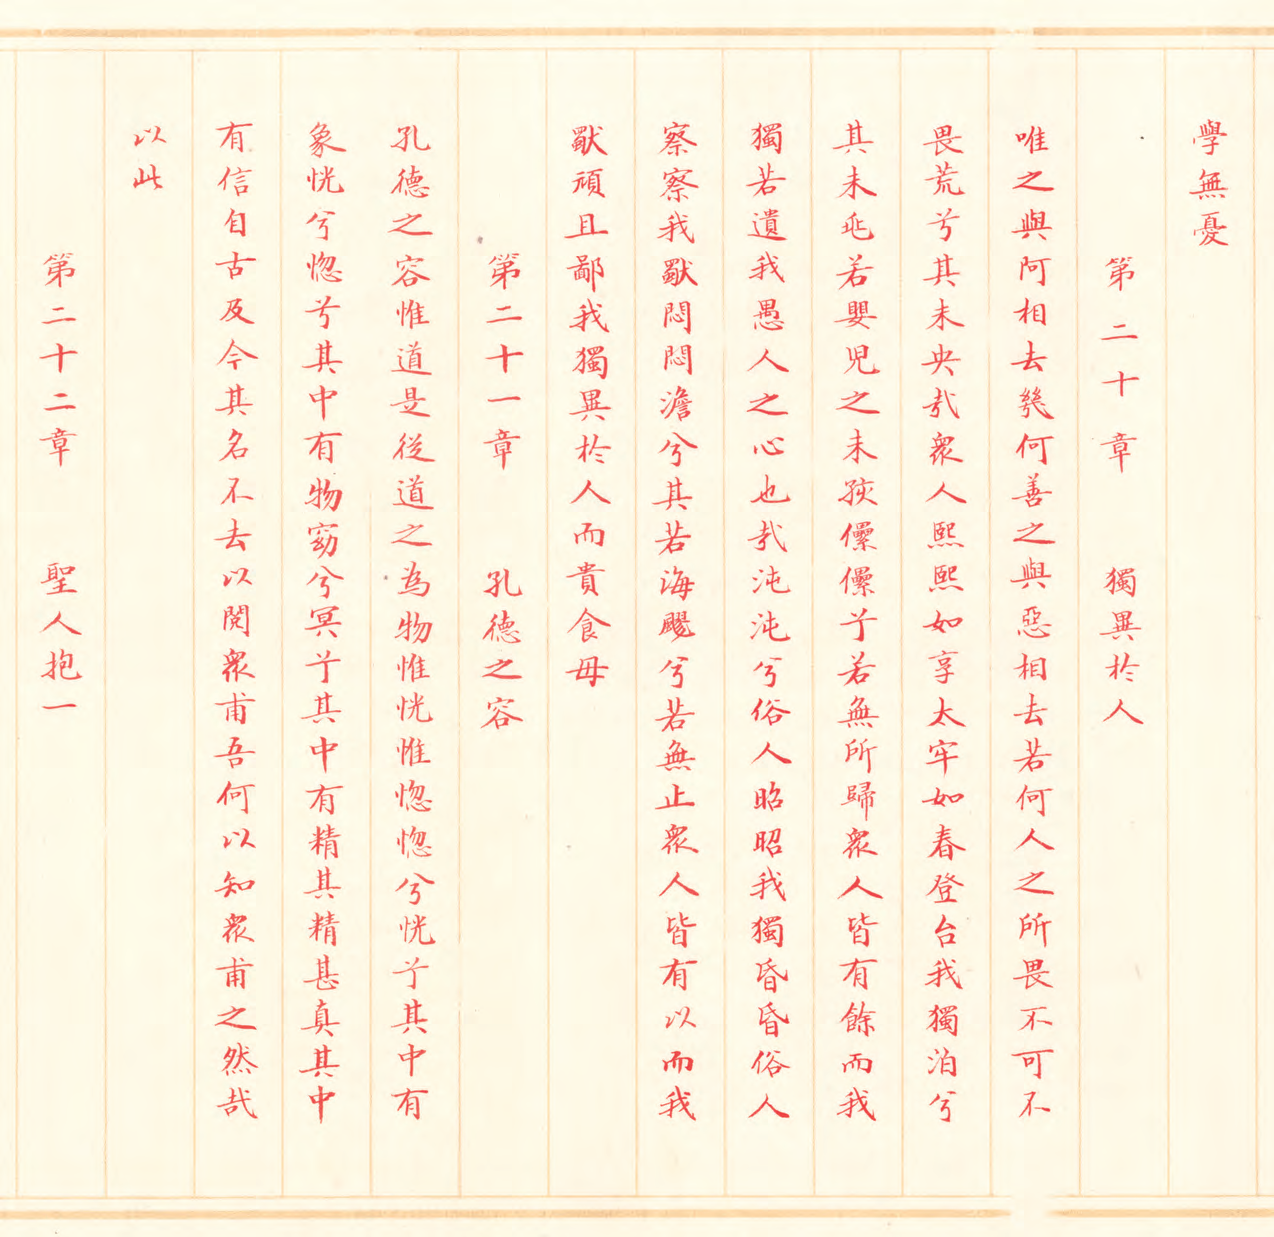 學無憂
第二十章 獨異於人
唯之與阿相去幾何善之與惡相去若何人之所畏不可不
畏荒兮其未央哉衆人熙熙如享太牢如春登台我獨泊兮
其未兆若嬰兒之未孩儽儽兮若無所歸衆人皆有餘而我
獨若遺我愚人之心也哉沌沌兮俗人昭昭我獨昏昏俗人
察察我獸悶悶澹兮其若海飂兮若無止衆人皆有以而我
獸頑且鄙我獨異於人而貴食母
第二十一章 孔德之容
孔德之容惟道是從道之為物惟恍惟惚惚兮恍兮其中有
象恍兮惚兮其中有物窈兮冥兮其中有精其精甚真其中
有信自古及今其名不去以閱衆甫吾何以知衆甫之然哉
以此
第二十二章 聖人抱一